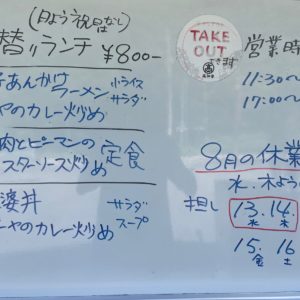 (日よう祝日なし)
替りランチ ¥800-
子あんかけラーメン 小ライス
サラダ
ャのカレー炒め
肉とピーマンの 定食
スターソース炒め
婆丼 サラダ
ーャのカレー炒め スープ
TAKE
OUT
できます
営業時
11:30〜
17:00〜
8月の休業
水、木よう
担し 13.14.
水 木
15. 16
金 土